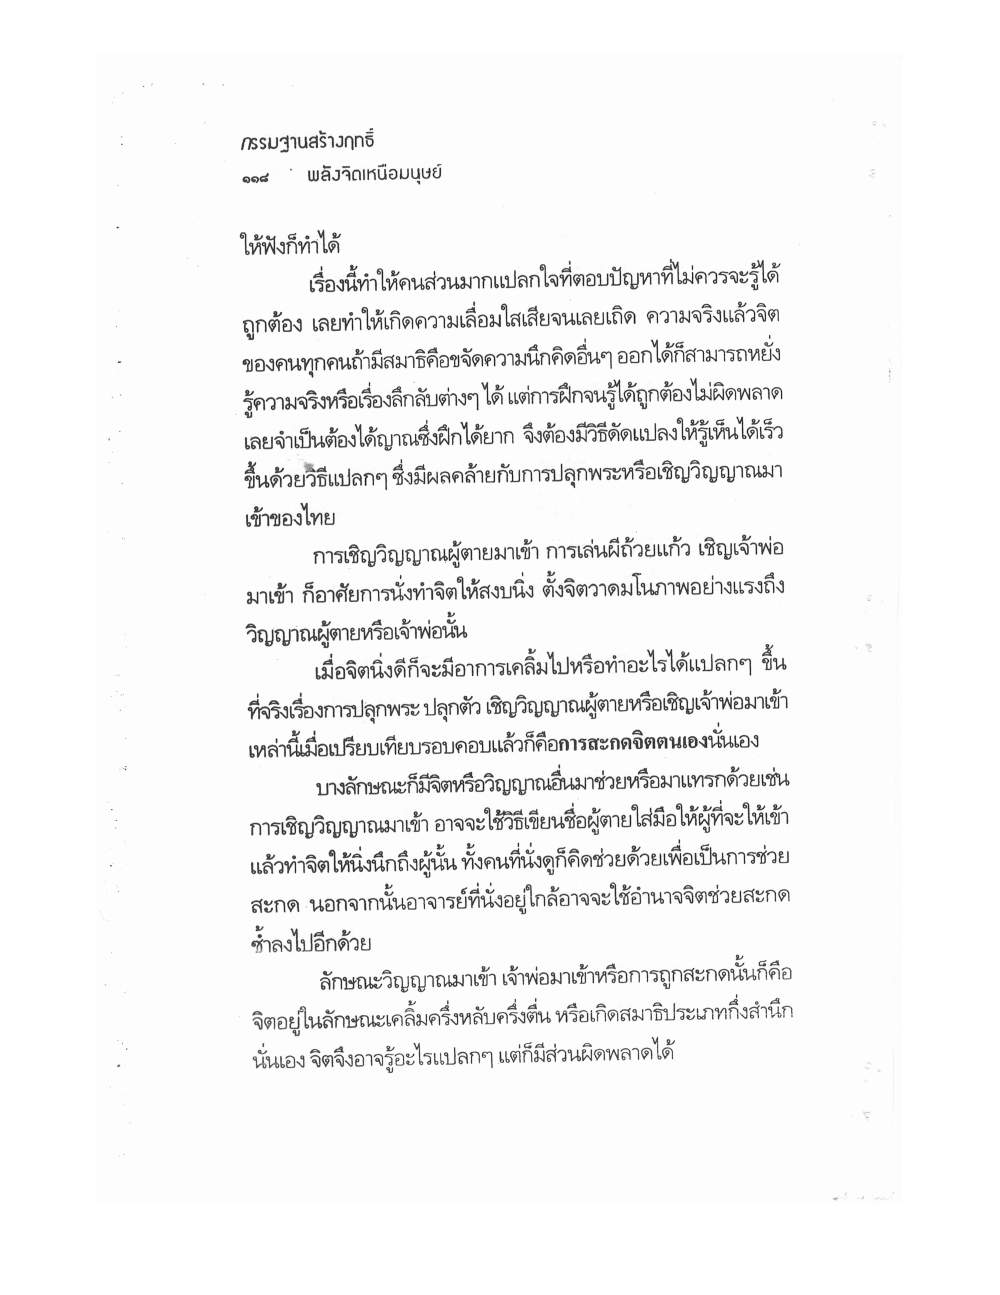 กรรมฐานสร้างฤทธิ์
๑๑๘ พลังจิตเหนือมนุษย์
ให้ฟังก็ทำได้
เรื่องนี้ทำให้คนส่วนมากแปลกใจที่ตอบปัญหาที่ไม่ควรจะรู้ได้
ถูกต้อง เลยทำให้เกิดความเลื่อมใสเสียจนเลยเถิด ความจริงแล้วจิต
ของคนทุกคนถ้ามีสมาธิคือขจัดความนึกคิดอื่นๆ ออกได้ก็สามารถหยั่ง
รู้ความจริงหรือเรื่องลึกลับต่างๆ ได้ แต่การฝึกจนรู้ได้ถูกต้องไม่ผิดพลาด
เลยจำเป็นต้องได้ญาณซึ่งฝึกได้ยาก จึงต้องมีวิธีดัดแปลงให้รู้เห็นได้เร็ว
ขึ้นด้วยวิธีแปลกๆ ซึ่งมีผลคล้ายกับการปลุกพระหรือเชิญวิญญาณมา
เข้าของไทย
การเชิญวิญญาณผู้ตายมาเข้า การเล่นผีถ้วยแก้ว เชิญเจ้าพ่อ
มาเข้า ก็อาศัยการนั่งทำจิตให้สงบนิ่ง ตั้งจิตวาดมโนภาพอย่างแรงถึง
วิญญาณผู้ตายหรือเจ้าพ่อนั้น
เมื่อจิตนิ่งดีก็จะมีอาการเคลิ้มไปหรือทำอะไรได้แปลกๆ ขึ้น
ที่จริงเรื่องการปลุกพระ ปลุกตัว เชิญวิญญาณผู้ตายหรือเชิญเจ้าพ่อมาเข้า
เหล่านี้เมื่อเปรียบเทียบรอบคอบแล้วก็คือการสะกดจิตตนเองนั่นเอง
บางลักษณะก็มีจิตหรือวิญญาณอื่นมาช่วยหรือมาแทรกด้วยเช่น
การเชิญวิญญาณมาเข้า อาจจะใช้วิธีเขียนชื่อผู้ตายใส่มือให้ผู้ที่จะให้เข้า
แล้วทำจิตให้นิ่งนึกถึงผู้นั้น ทั้งคนที่นั่งดูก็คิดช่วยด้วยเพื่อเป็นการช่วย
สะกด นอกจากนั้นอาจารย์ที่นั่งอยู่ใกล้อาจจะใช้อำนาจจิตช่วยสะกด
ซ้ำลงไปอีกด้วย
ลักษณะวิญญาณมาเข้า เจ้าพ่อมาเข้าหรือการถูกสะกดนั้นก็คือ
จิตอยู่ในลักษณะเคลิ้มครึ่งหลับครึ่งตื่น หรือเกิดสมาธิประเภทกึ่งสำนึก
นั่นเอง จิตจึงอาจรู้อะไรแปลกๆ แต่ก็มีส่วนผิดพลาดได้